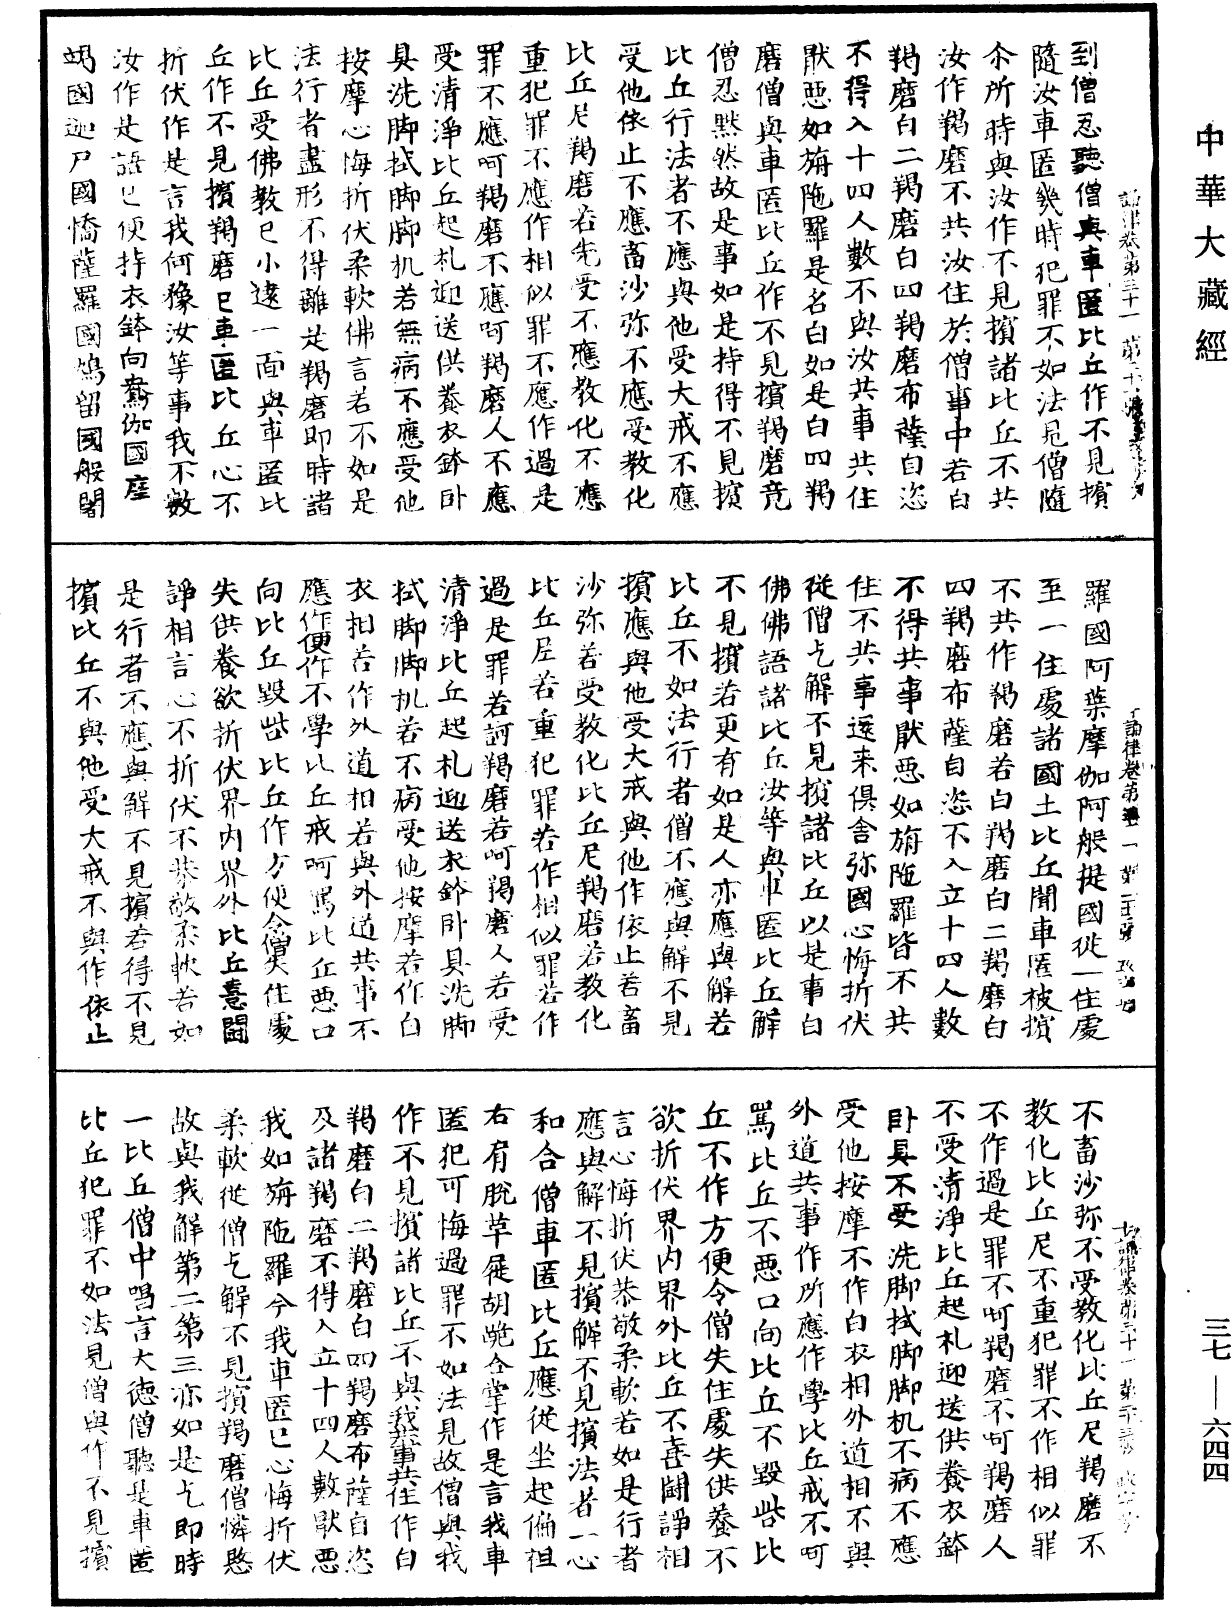 中華大藏經
到僧忍聽僧與車匿比丘作不見擯
隨汝車匿幾時犯罪不如法見僧隨
尒所時與汝作不見擯諸比丘不共
汝作羯磨不共汝住於僧事中若白
羯磨白二羯磨白四羯磨布薩自恣
不得入十四人數不與汝共事共住
猒惡如旃陁羅是名白如是白四羯
磨僧與車匿比丘作不見擯羯磨竟
僧忍黙然故是事如是持得不見擯
比丘行法者不應與他受大戒不應
受他依止不應畜沙弥不應受教化
比丘尼羯磨若先受不應教化不應
重犯罪不應作相似罪不應作過是
罪不應呵羯磨不應呵羯磨人不應
受清淨比丘起礼迎送供養衣鉢卧
具洗脚拭脚脚机若無病不應受他
按摩心悔折伏柔軟佛言若不如是
法行者盡形不得離是羯磨即時諸
比丘受佛教已小遠一面與車匿比
丘作不見擯羯磨已車匿比丘心不
折伏作是言我何豫汝等事我不數
汝作是語已便持衣鉢向鴦伽國摩
竭國迦尸國憍薩羅國鳩留國般闍
羅國阿葉摩伽阿般提國從一住處
至一住處諸國土比丘聞車匿被擯
不共作羯磨若白羯磨白二羯磨白
四羯磨布薩自恣不入立十四人數
不得共事猒惡如旃陁羅皆不共
住不共事還来俱舍弥國心悔折伏
從僧乞解不見擯諸比丘以是事白
佛佛語諸比丘汝等與車匿比丘解
不見擯若更有如是人亦應與解若
比丘不如法行者僧不應與解不見
擯應與他受大戒與他作依止若畜
沙弥若受教化比丘尼羯磨若教化
比丘尼若重犯罪若作相似罪若作
過是罪若訶羯磨若呵羯磨人若受
清淨比丘起礼迎送衣鉢卧具洗脚
拭脚脚机若不病受他按摩若作白
衣相若作外道相若與外道共事不
應作便作不學比丘戒呵罵比丘惡口
向比丘毀呰比丘作方便令僧失住處
失供養欲折伏界內界外比丘憙鬪
諍相言心不折伏不恭敬柔軟若如
是行者不應與解不見擯若得不見
擯比丘不與他受大戒不與作依止
不畜沙弥不受教化比丘尼羯磨不
教化比丘尼不重犯罪不作相似罪
不作過是罪不呵羯磨不呵羯磨人
不受清淨比丘起礼迎送供養衣鉢
卧具不受洗脚拭脚脚机不病不應
受他按摩不作白衣相外道相不與
外道共事作所應作學比丘戒不呵
罵比丘不惡口向比丘不毀呰比
丘不作方便令僧失住處失供養不
欲折伏界內界外比丘不喜鬪諍相
言心悔折伏恭敬柔軟若如是行者
應與解不見擯解不見擯法者一心
和合僧車匿比丘應從坐起偏袒
右肩脫草屣胡跪合掌作是言我車
匿犯可悔過罪不如法見故僧與我
作不見擯諸比丘不與我共事共住作白
羯磨白二羯磨白四羯磨布薩自恣
及諸羯磨不得入立十四人數猒惡
我如旃陁羅今我車匿已心悔折伏
柔軟從僧乞解不見擯羯磨僧憐愍
故與我解第二第三亦如是乞即時
一比丘僧中唱言大德僧聽是車匿
比丘犯罪不如法見僧與作不見擯
三七—六四四